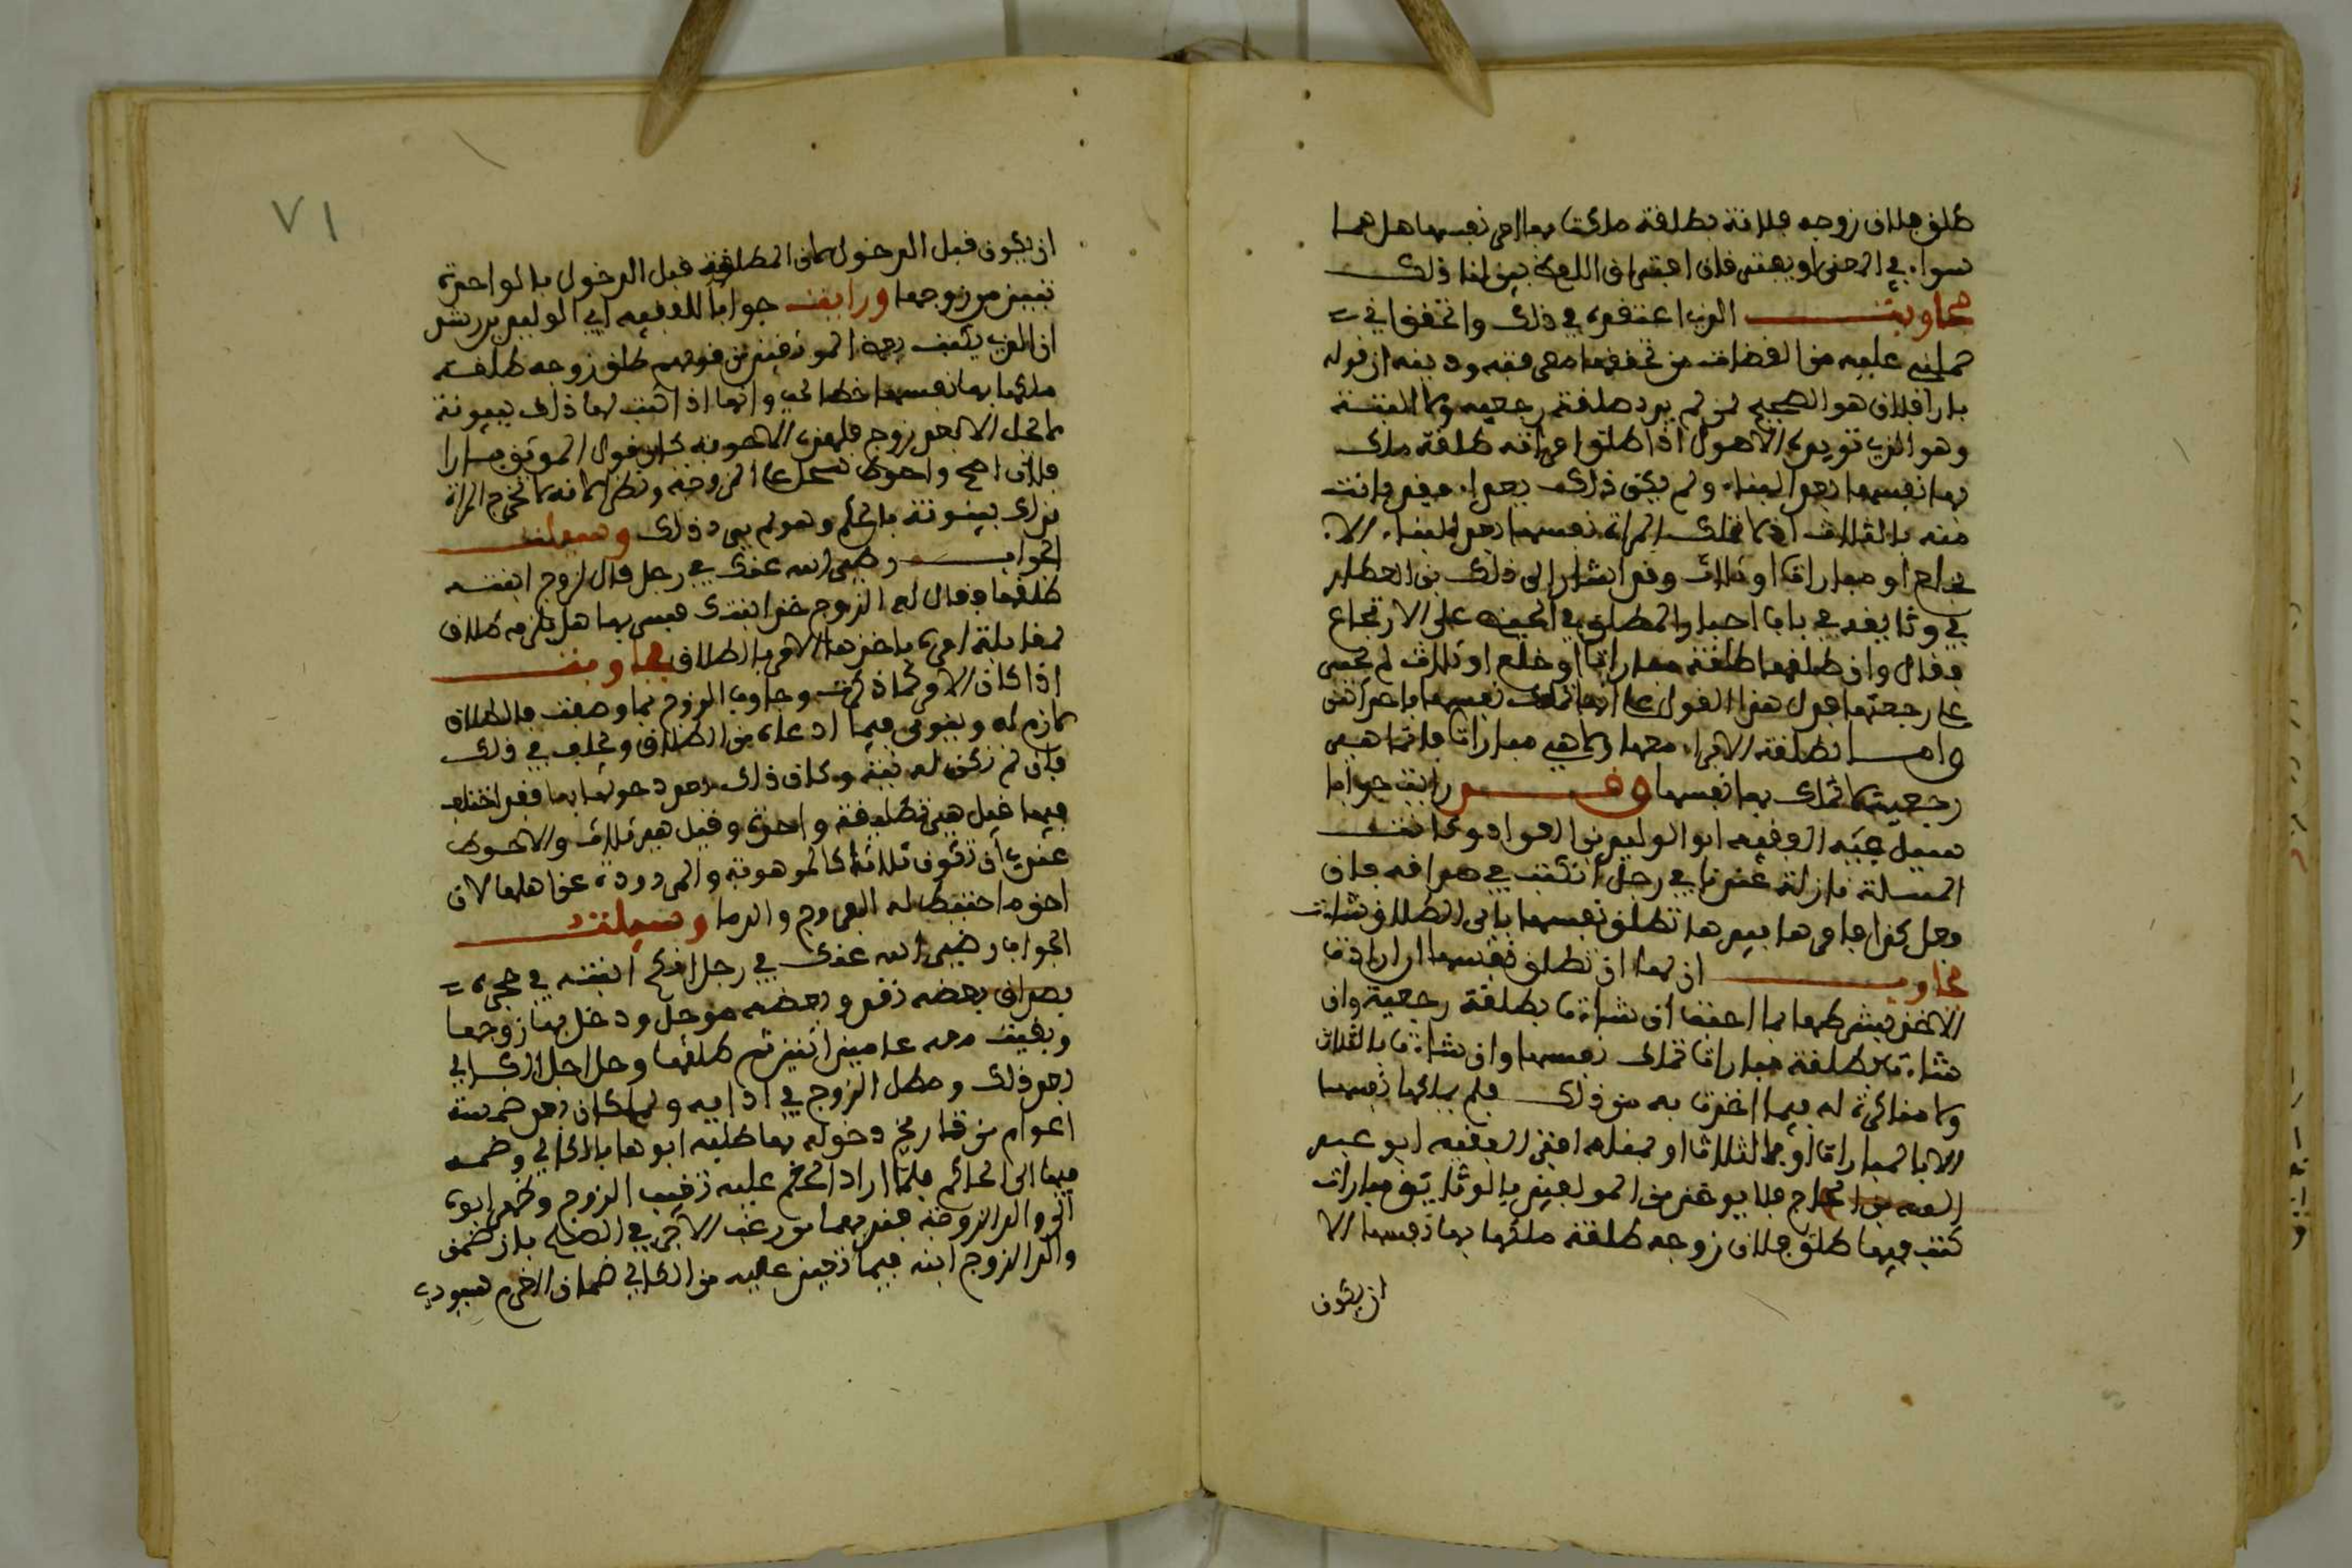 طلق فلان زوجه فلانة بطلقة ملكت بها امر نفسها هل هما
سواء في المعنى او يفتر فان افتنا في اللفظ بين لنا ذلك
فجاوبت الذي اعتقده في ذلك واتحققه
علمه من القضات من تحققها معرفته ودينه ان قوله
بارا فلان هو الصحيح لمن لم يرد طلقة رجعية ولا البتة
وهو الذي توجبه الاصول اذا طلق امراته طلقة ملك
بها نفسها بعد البناء ولم يكن ذلك بعداء فقد بانت
منه بالثلاث اذ لا تملك المراة نفسها بعد البناء الا
بخلع او مبارات او ثلاث وقد اشار الى ذلك بن العطار
في وثايقه في باب اجبار المطلق في الحيض على الارتجاع
فقال وان طلقها طلقة مبارات او خلع او ثلاث لم يجبر
على رجعتها فدل هذا القول على انها تملك نفسها باحدا هذه
واما بطلقة لا فداء معها ولا هي مبارات فانما هي
رجعية لا تملك بها نفسها وقد رايت جوابا
سيل عنه الفقيه ابو الوليد بن العواد وكانت
المسلة نازلة عندنا في رجل كتب في صداقه فان
فعل كذا فامرها بيدها تطلق نفسها باى الطلاق شات
فجاوب ان لها ان تطلق نفسها ان ارادت
الاخذ بشرطها بما احبت ان شات بطلقة رجعية وان
شات بطلقة مبارات تملك نفسها وان شات بالثلاث
ولا مناكرة له فيما اخذت به من ذلك فلم يملكها نفسها
الا بالمبارات او بالثلاث او بمثله افتى الفقيه ابو عبد
الله بن الحاج فلا يوخذ من المولفين بالوثايق مبارات
كتب فيها طلق فلان زوجه طلقة ملكها بها نفسها الا
ان يكون
٧١
ان يكون قبل الدخول لان المطلقة قبل الدخول بالواحدة
تبين من زوجها ورايت جوابا للفقيه ابي الوليد بن رشد
ان الذي يكتب بعض الموثقين من قولهم طلق زوجه طلقة
ملكها بها نفسها خطا لي وانها اذا كتب لها ذلك بينونة
لا تحل الا بعد زوج فلهذه الاجوبة كان قول الموثق بارا
فلان اصح واحوط للرجل على الزوجة ونظرا لانه لا تخرج المراة
بذلك بينونة بالحكم وهو لم يرد ذلك وسيلت
الجواب رضي الله عنك في رجل قال لزوج ابنته
طلقها وقال له الزوج خذ ابنتك فيسر بها هل يلزمه طلاق
لمقابلته امره باخذها لامره بالطلاق فجاوبت
اذا كان الامر كما ذكرت وجاوب الزوج بما وصفت فالطلاق
لازم له وينوى فيما ادعاه من الطلاق ويحلف في ذلك
فان لم تكن له نية وكان ذلك بعد دخولها بها فقد اختلف
فيها فقيل هي تطليقة واحدة وقيل هي ثلاث والاحوط
عندي ان تكون ثلاثا كالموهوبة والمردودة عند اهلها لان
احق ما احتيط له الفروج والدما وسيلت
الجواب رضي الله عنك في رجل انكح ابنته في حجره
بصداق بعضه نقد وبعضه موجل ودخل بها زوجها
وبقيت معه عامين اثنين ثم طلقها وحل اجل الكالي
بعد ذلك ومطل الزوج في ادايه ولما كان بعد خمسة
اعوام من تاريخ دخوله بها طلبه ابوها بالكالي وخصمه
فيها الى الحاكم فلما اراد الحكم عليه تغيب الزوج وظهر ابوه
الى والد الزوجة فندبهما من رغب الاجر في الصلح بان ضمن
والد الزوج ابنه فيما تعين عليه من الكالي ضمان الغرم ليودي